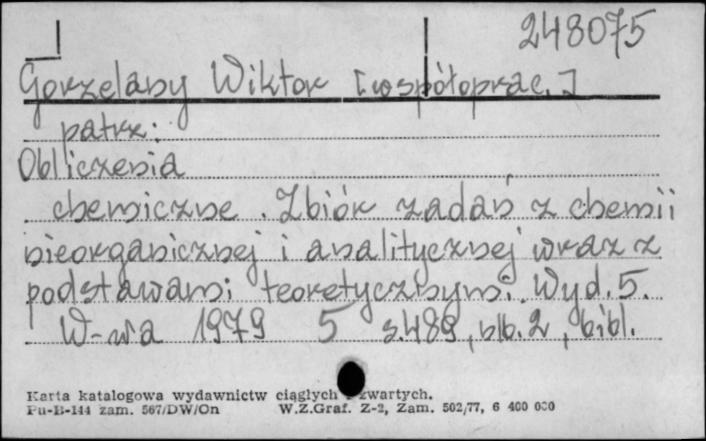 248075
Gorzelany Wiktor [współoprac.]
patrz:
Obliczenia
chemiczne. Zbiór zadań z chemii
nieorganicznej i analitycznej wraz z
podstawami teoretycznymi. Wyd. 5.
W-wa 1979 5 s. 489, nlb. 2, bibl.
Karta katalogowa wydawnictw ciągłych i zwartych.
Pu-B-144 zam. 567/DW/On W.Z.Graf. Z-2, Zam. 502/77, 6 400 000